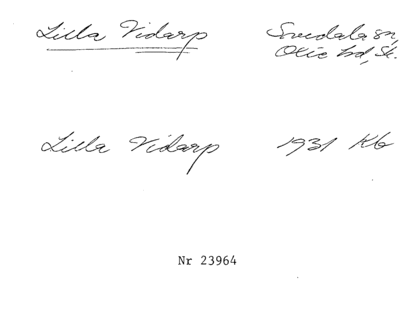 Lilla Vidarp Svedala sn,
Oxie hd, Sk.
Lilla Vidarp 1931 Kb
Nr 23964